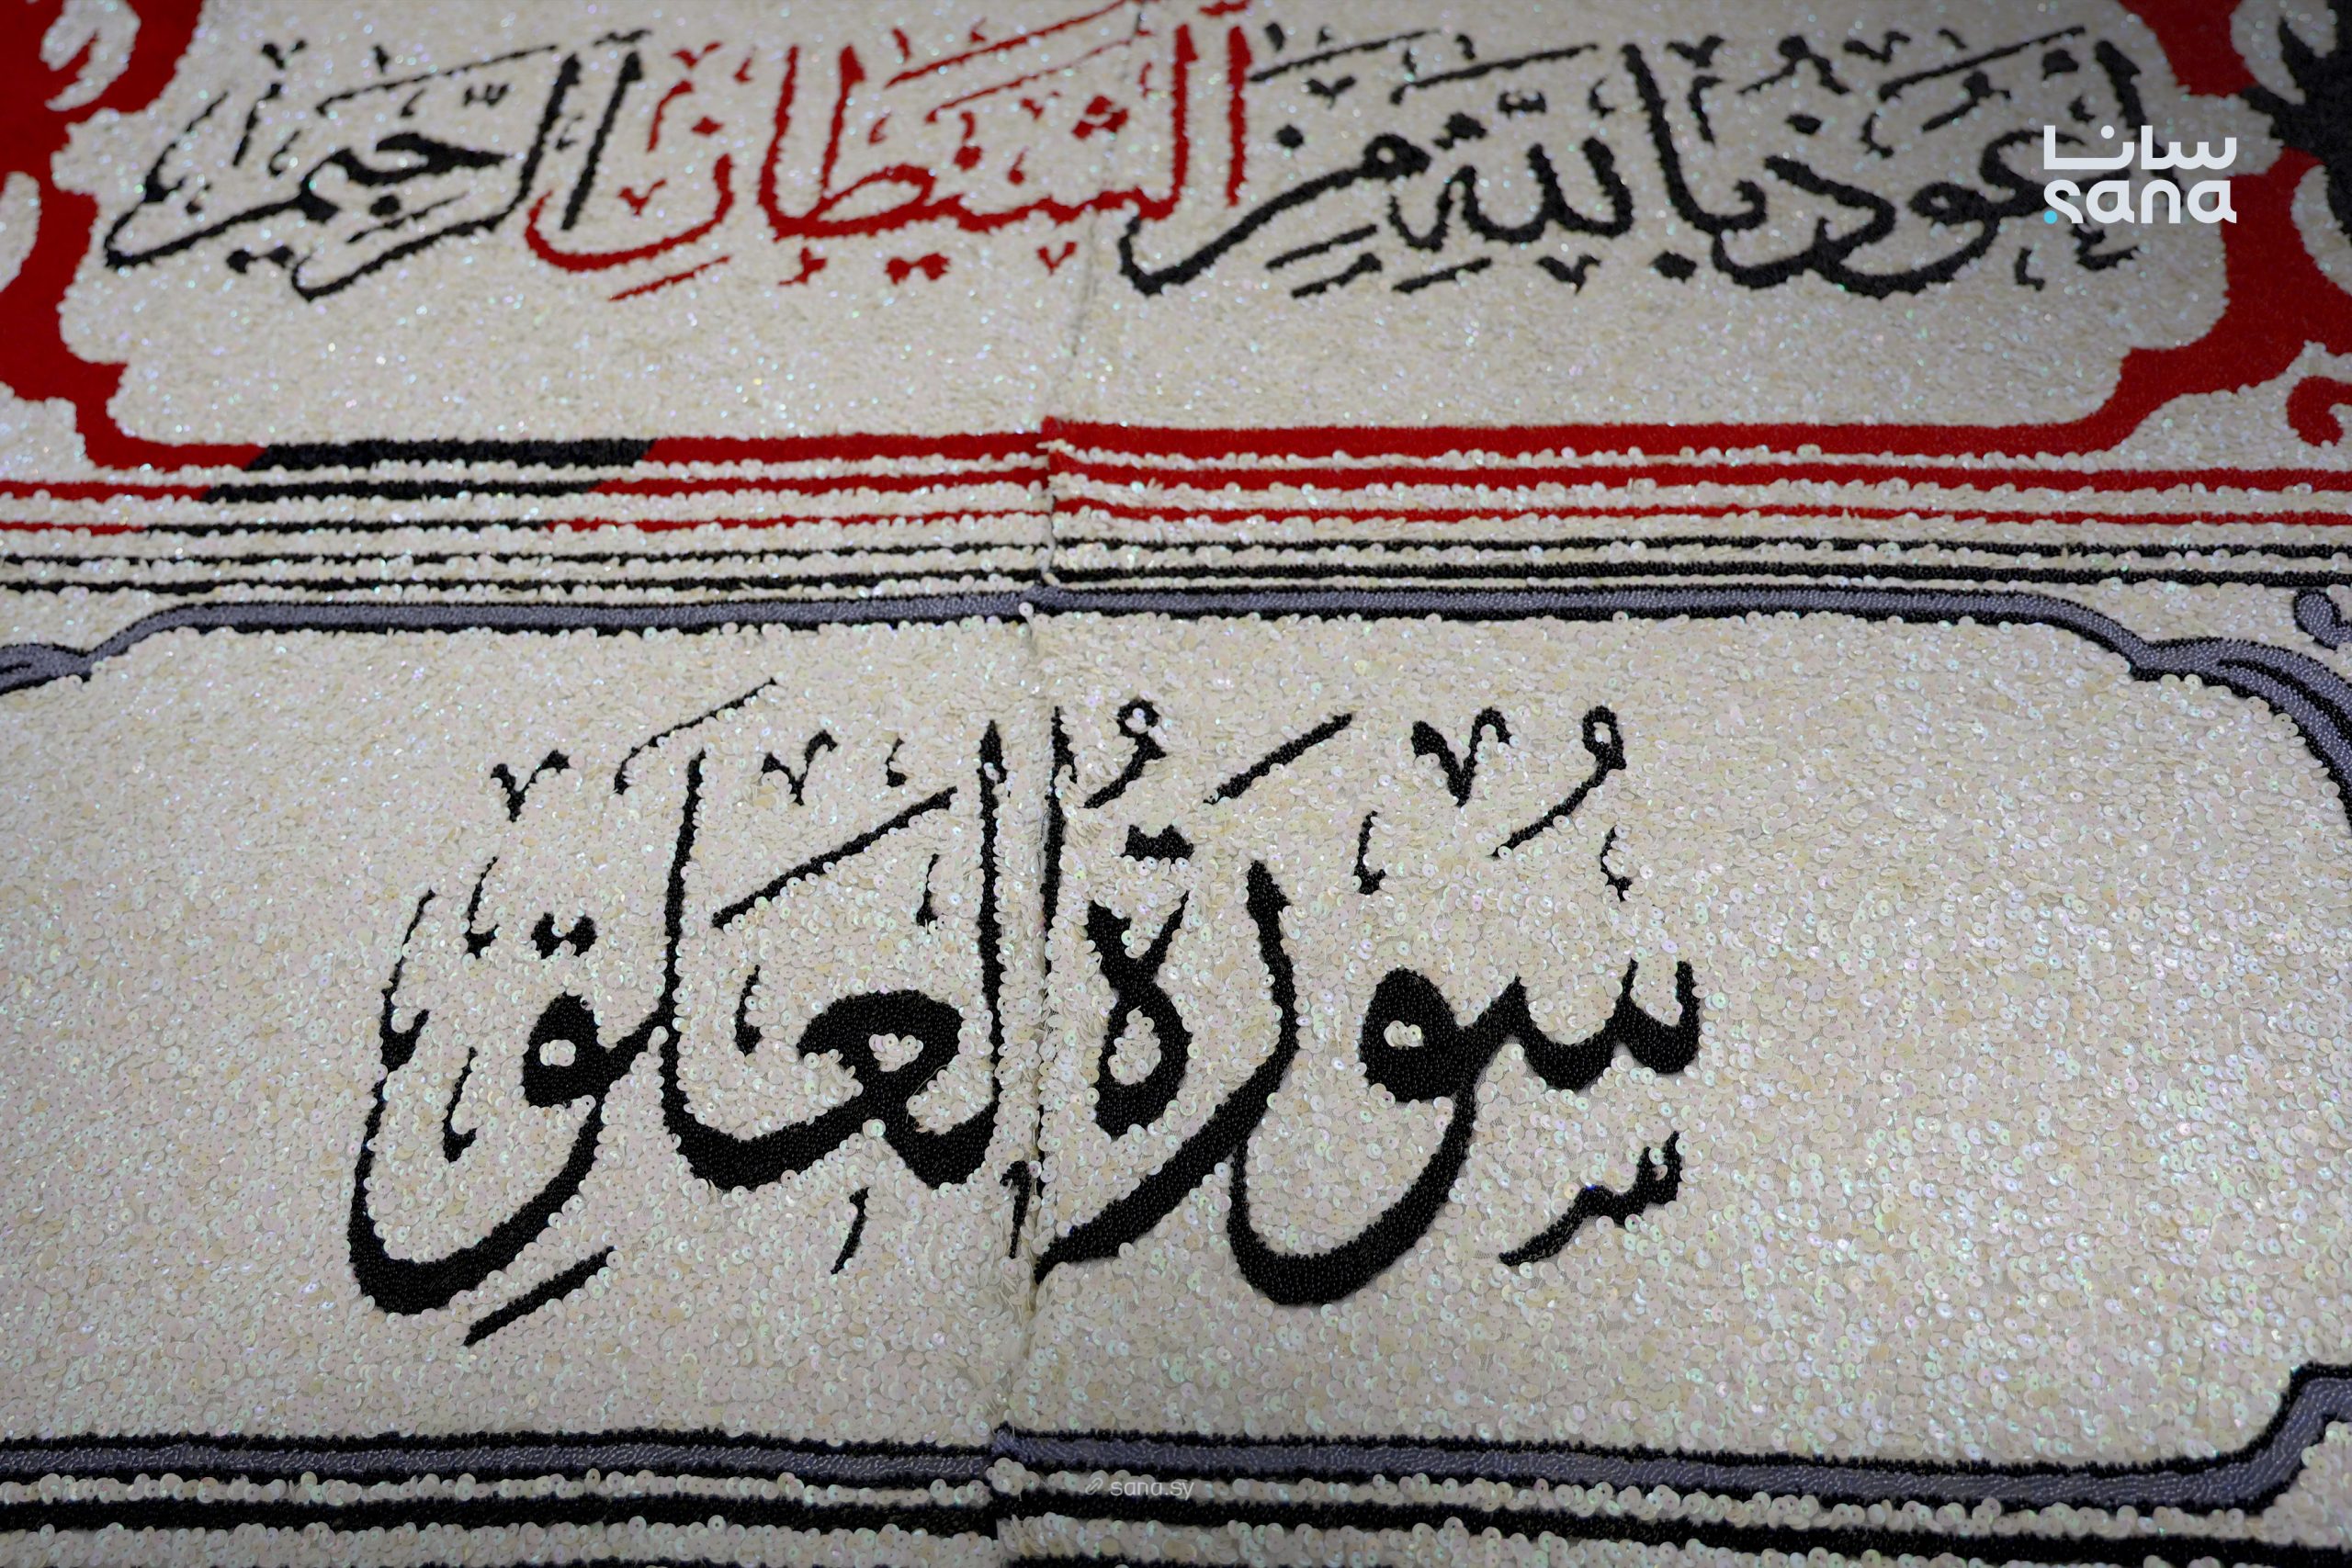 أَعُوذُ بِاللَّهِ مِنَ الشَّيْطَانِ الرَّجِيمِ
سانا
sana
سُورَةُ الْعَلَقِ
sana.sy